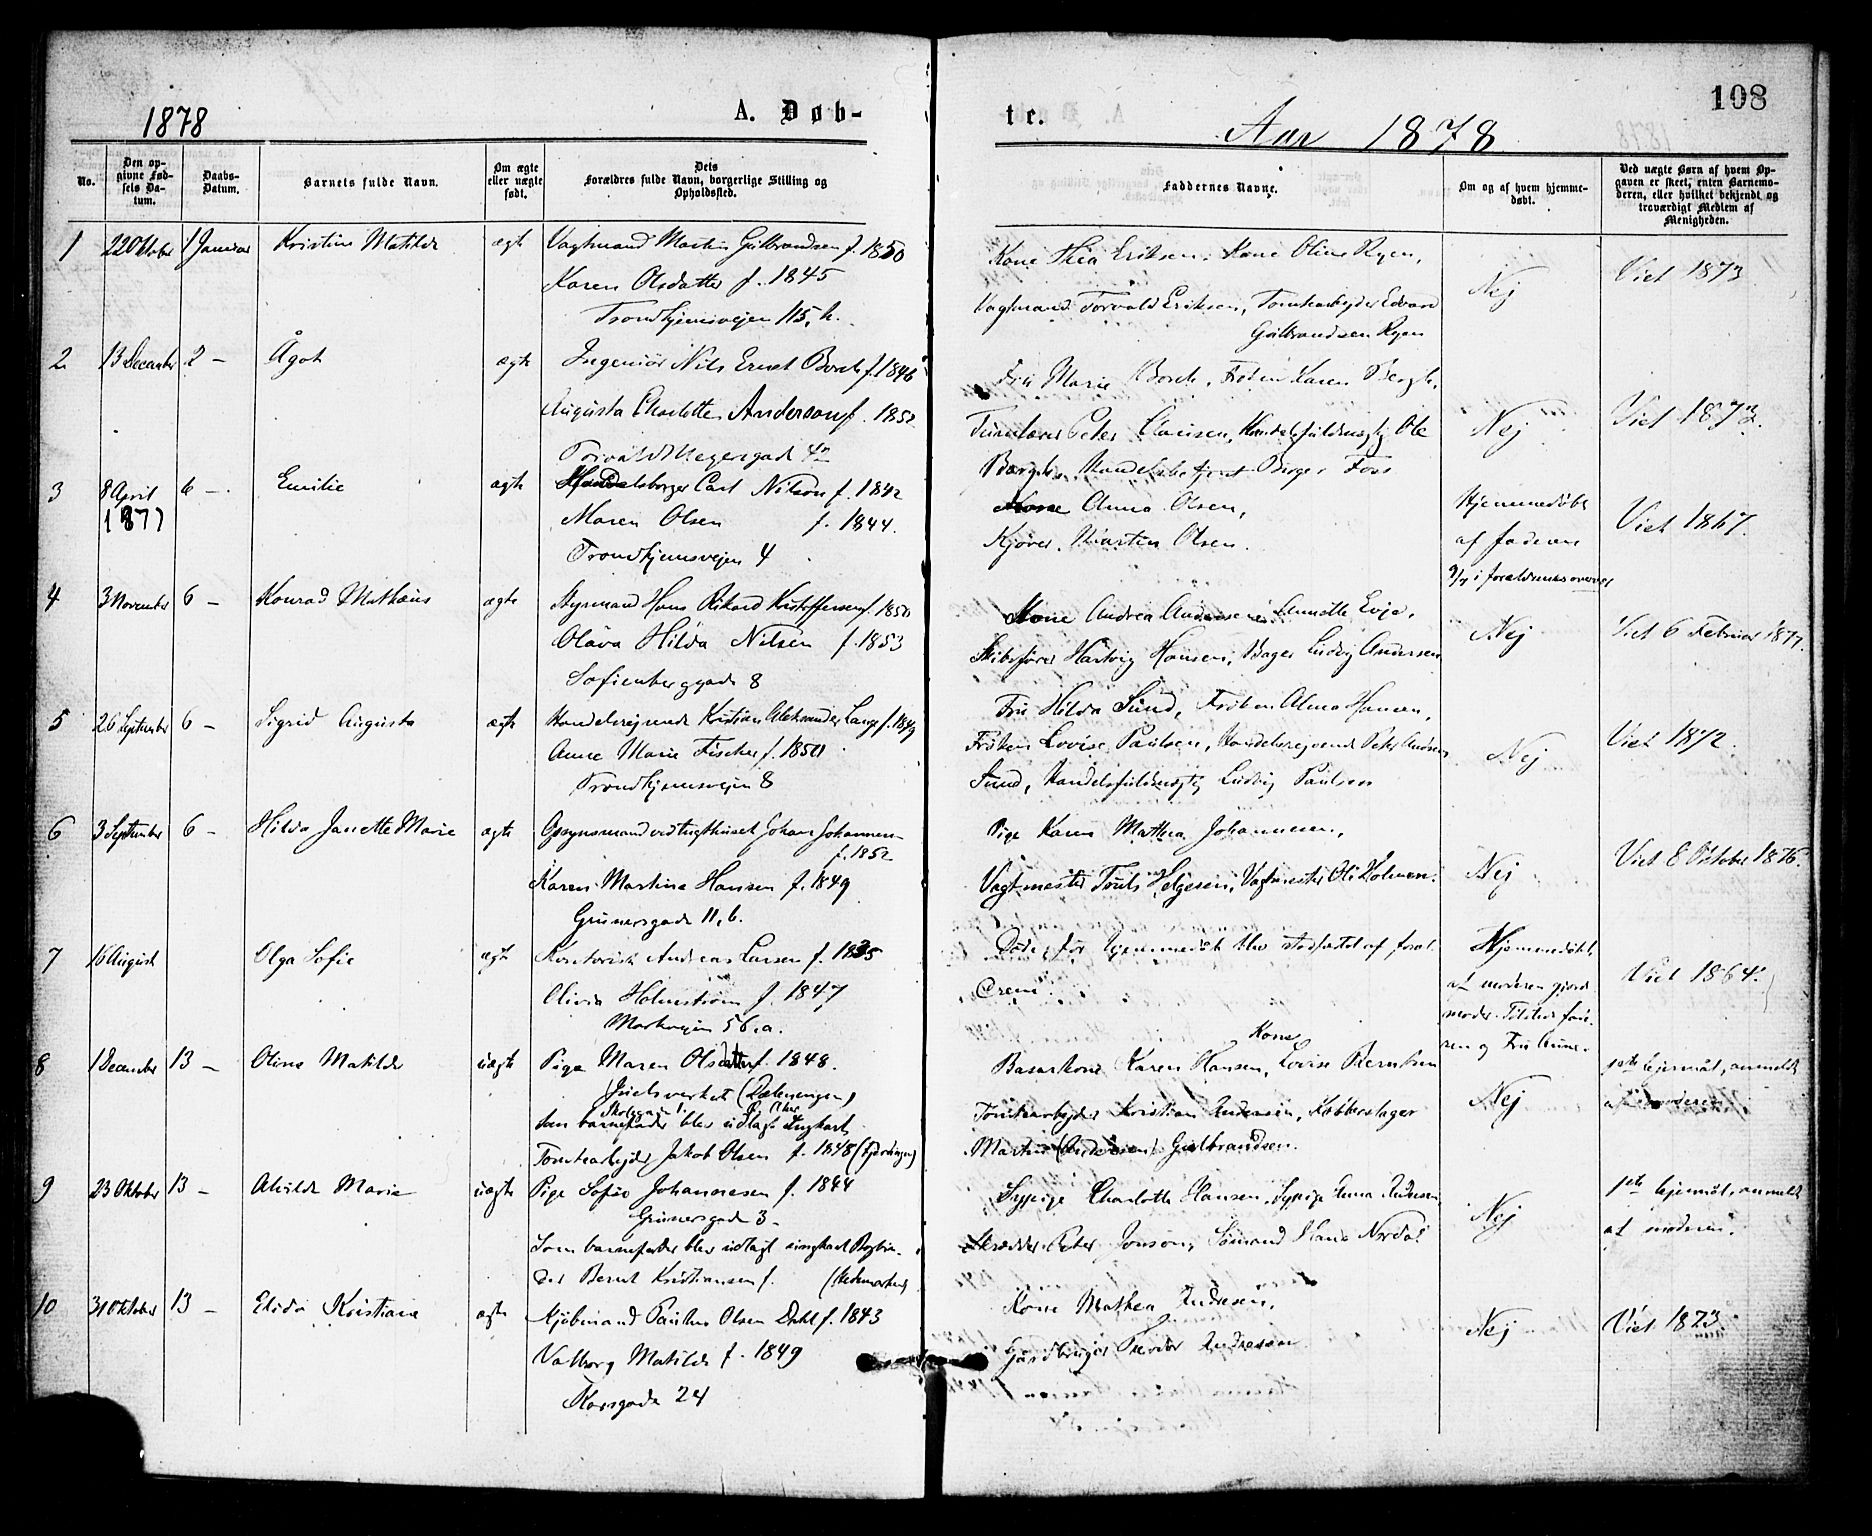 1878
A. Døb-
No.
Den op-
givne Fød-
sels Da-
tum.
Daabs-
Datum.
Barnets fulde Navn.
Om ægte
eller uægte
født.
Dets
Forældres fulde Navn, borgerlige Stilling og
Opholdssted.
1 22 Oktober 1 Januar Kristine Matilde ægte Vagtmand Martin Gulbrandsen f. 1850
Karen Olsdatter f. 1845
Trondhjemsvejen 115, h.
2 13 December 2 – Ågot ægte Ingeniør Nils Ernst Borch f. 1846
Augusta Charlotte Anderson f. 1852
Torvald Meyersgade 42
3 8 April 6 – Emilie ægte Handelsborger Carl Nilson f. 1842
1877 Maren Olsen f. 1844.
Trondhjemsvejen 4
4 3 November 6 – Konrad Mathæus ægte Styrmand Hans Rikard Kristoffersen f. 1850
Olava Hilda Nilsen f. 1853
Sofienberggade 8
5 26 September 6 – Sigrid Augusta ægte Handelsrejsende Kristian Aleksander Lange f. 1849
Anne Marie Fischer f. 1850
Trondhjemsvejen 8
6 3 September 6 – Hilda Janette Marie ægte Opsynsmand ved tugthuset Johan Johannen-
f. 1852
Karen Martina Hansen f. 1849
Grünersgade 11, b.
7 16 August Olga Sofie ægte Kontorist Andreas Larsen f. 1835
Olivia Holmstrøm f. 1847
Markvejen 56, a.
8 1 December 13 – Olina Matilde uægte Pige Maren Olsdatter f. 1848.
Juelsverket (Dælenengen)
Som barnefader blev udlagt ungkarl
Tomtearbejder Jakob Olsen f. 1848 (Fjerdingen)
9 23 Oktober 13 – Alvilde Marie uægte Pige Sofie Johannesen f. 1844
Grünersgade 3 –
Som barnefader blev udlagt ungkarl Bogbin-
der Bernt Kristiansen f. (Hedemarken)
10 31 Oktober 13 – Elida Kristiane ægte Kjøbmand Paulus Olsen Dehl f. 1843
Valborg Matilde f. 1849
Korsgade 24
108
te.
Aar 1878
Faddernes Navne.
Om og af hvem hjemme-
døbt.
Ved uægte Børn af hvem Op-
gaven er skeet, enten Barnemo-
deren, eller hvilket bekjendt og
troværdigt Medlem af
Menigheden.
Kone Thea Eriksen, Kone Oline Ryen, Nej Viet 1873
Vagtmand Torvald Eriksen, Tomtearbejder Edvard
Gulbrandsen Ryen
Fru Marie Borch, Frøken Karen Bergh,
Turnlærer Peter Clausen, Handelsfuldmægtig Ole Nej Viet 1873.
Bergh, Handelsbetjent Birger Foss
Kone Anna Olsen, Hjemmedøbt
Kjører Martin Olsen. af faderen Viet 1867.
9/4 i forældrenes overvær
Kone Andrea Andersen, Annette Evje,
Skibsfører Hartvig Hansen, Bager Ludvig Andersen Nej Viet 6 Februar 1877.
Fru Hilda Sund, Frøken Alma Hansen,
Frøken Lovise Paulsen, Handelsrejsende Peter Andreas Nej Viet 1872.
Sund, Handelsfuldmægtig Ludvig Paulsen
Pige Karen Mathea Johannesen,
Vagtmester Truls Helgesen, Vagtmester Ole Holmen. Nej Viet 8 Oktober 1876.
Døde, før hjemmedåb blev stadfæstet af foræl- Hjemmedøbt
drene. af moderen gjord- Viet 1864.
moder. Tilstede fade-
ren og Fru
Kone
Karen Hansen, Lovise Berntsen 1ste lejermål, anmeldt
Tomtearbejder Kristian Andersen, Kobberslager Nej af moderen
Martin (Andersen) Gulbrandsen.
Sypige Charlotte Hansen, Sypige Anna Andersen 1ste lejermål, anmeldt
Skrædder Peter Jonson, Sømand Hans Nordal Nej af moderen.
Kone Mathea Andresen,
Gårdbruger Teodor Andresen Nej Viet 1873